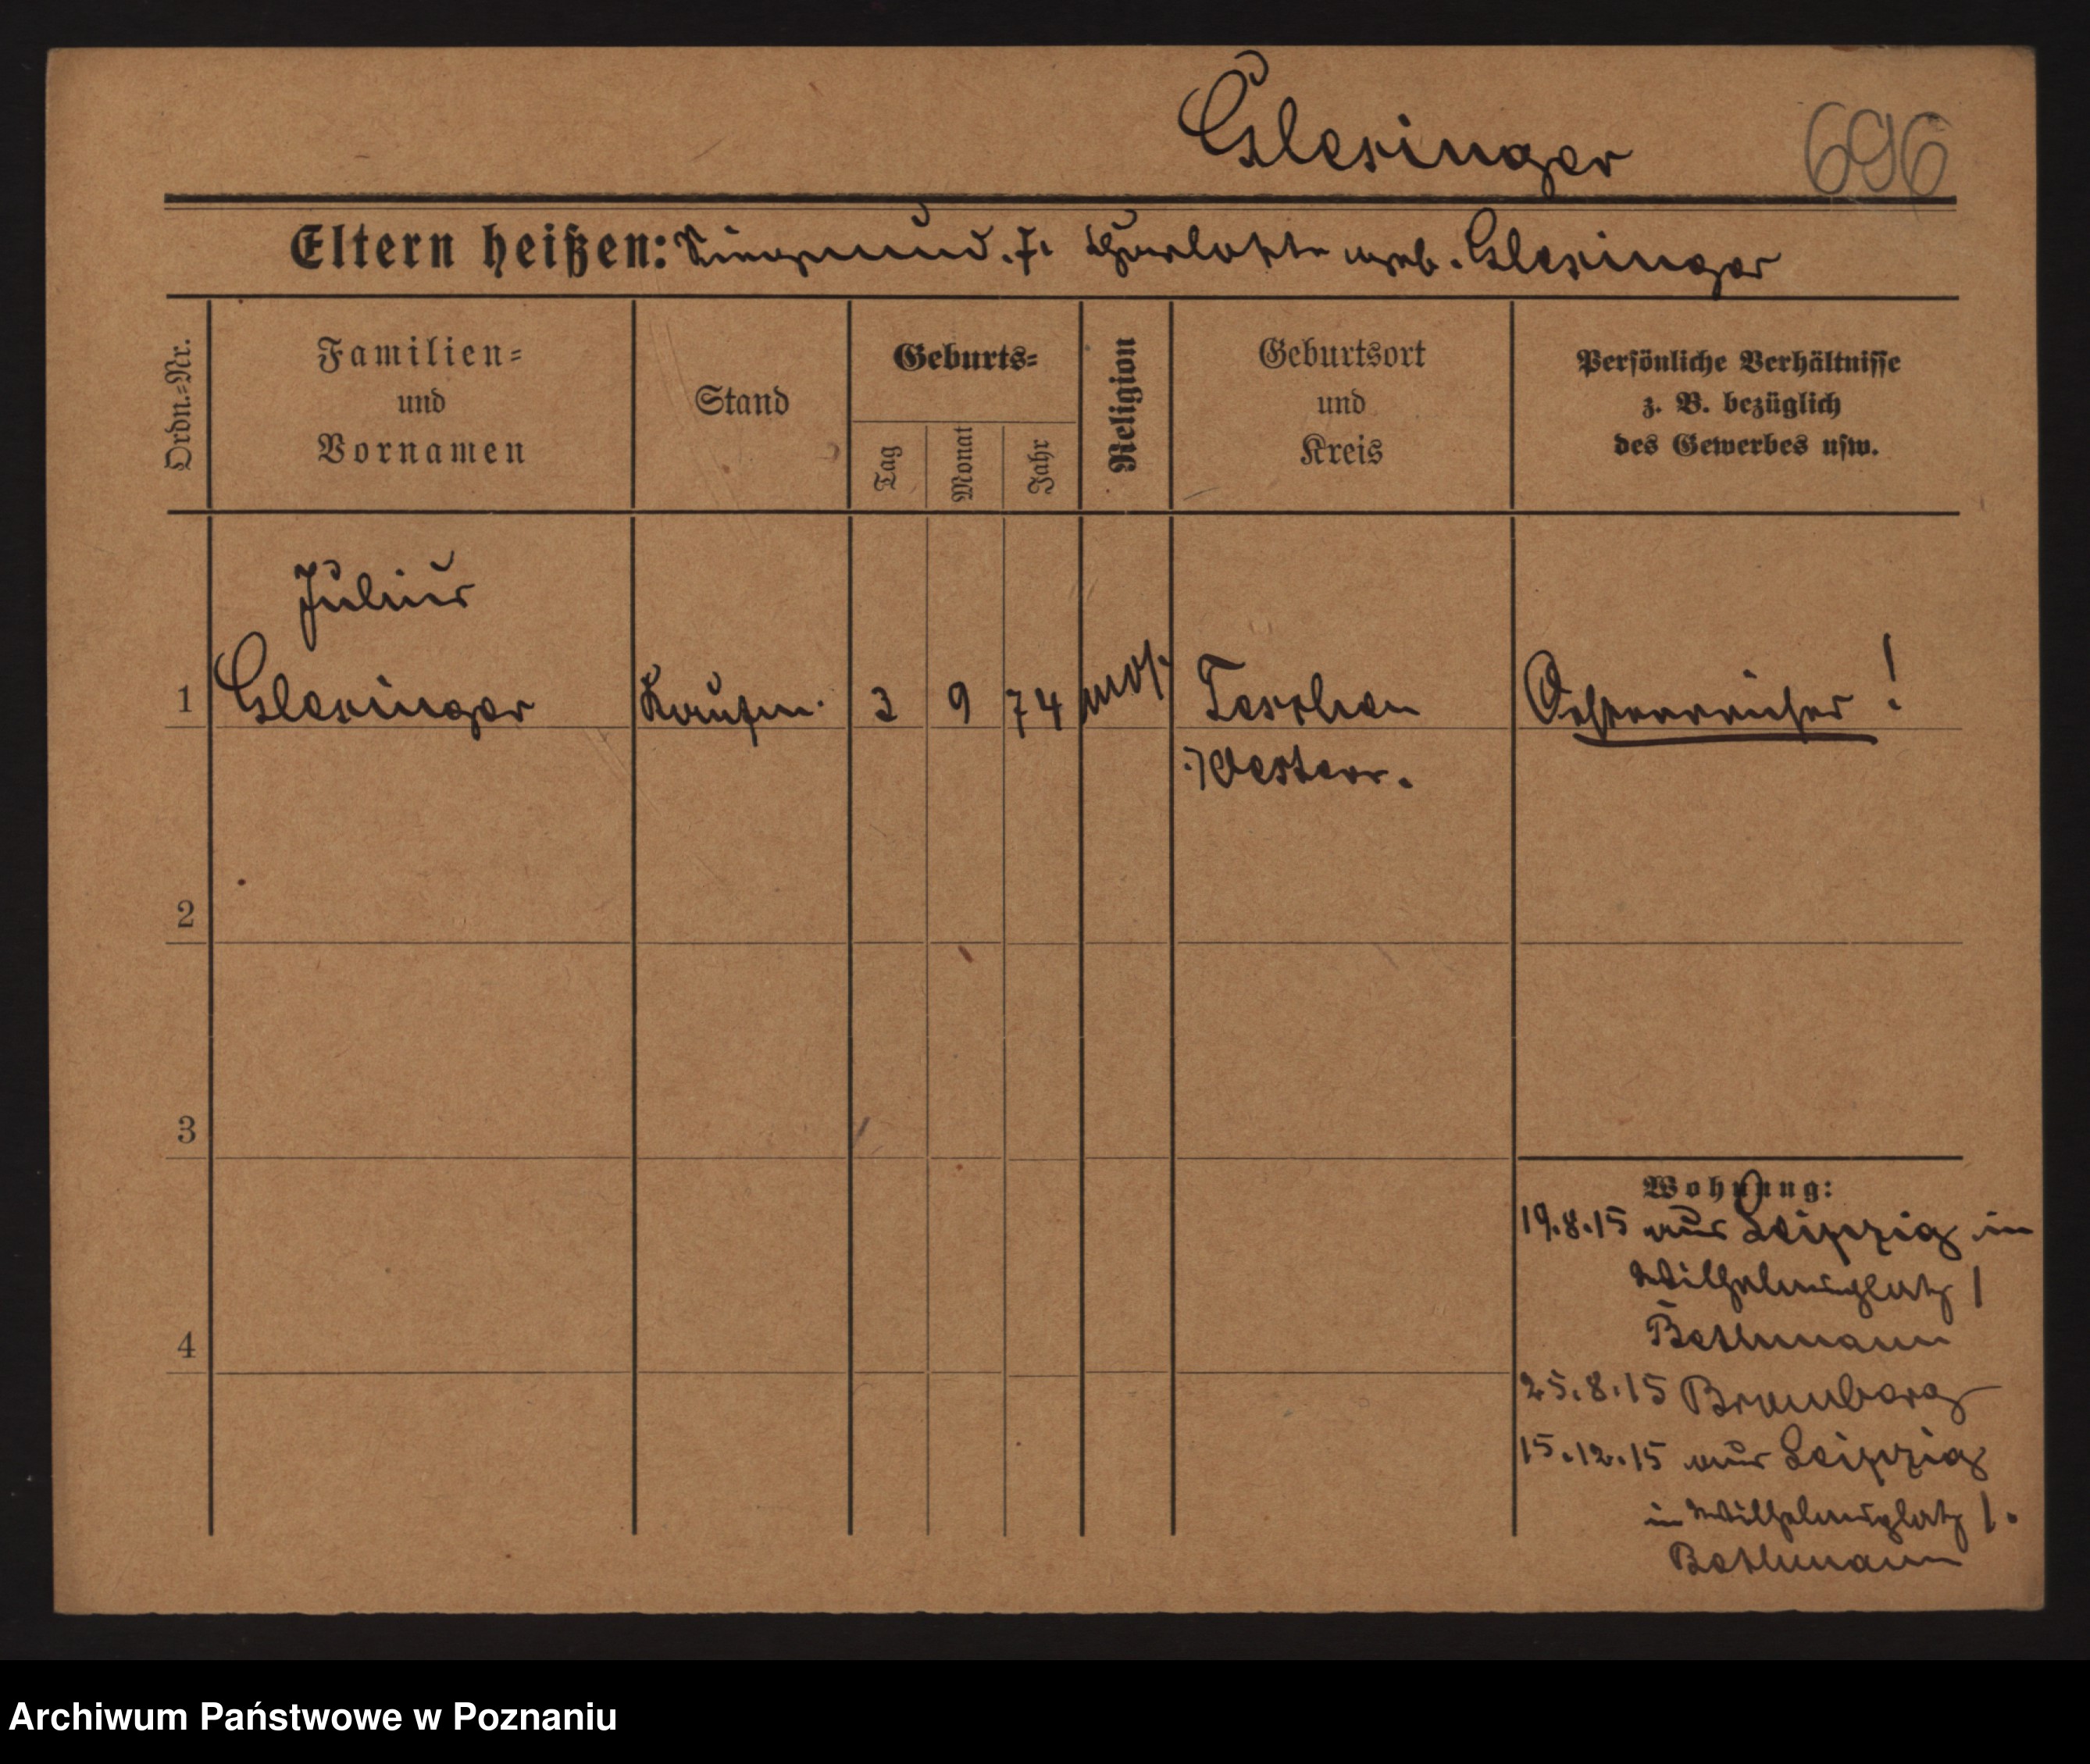 Glesinger
696
Eltern heißen: Siegmund. F. Charlotte geb. Glesinger
Ordn.=Nr.
Familien=
und
Vornamen
Stand
Geburts=
Tag
Monat
Jahr
Religion
Geburtsort
und
Kreis
Persönliche Verhältnisse
z. B. bezüglich
des Gewerbes usw.
Julius
1 Glesinger Kaufm. 3 9 74 mos. Teschen Oesterreicher!
Oesterr.
2
3
4
Wohnung:
19.8.15 aus Leipzig in
Wilhelmsplatz 1
Bethmann
25.8.15 Bromberg
15.12.15 aus Leipzig
in Wilhelmsplatz 1.
Bethmann
Archiwum Państwowe w Poznaniu